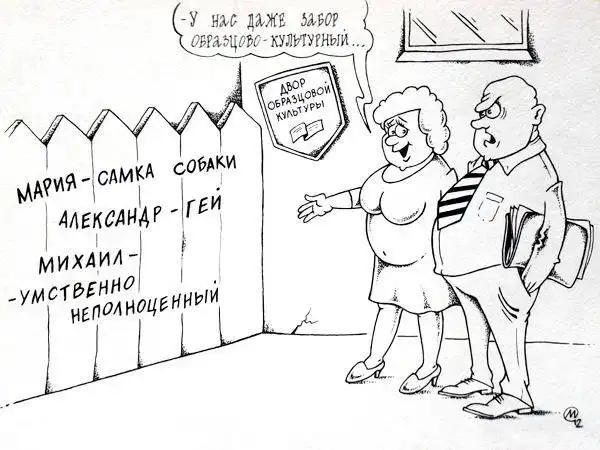 -У НАС ДАЖЕ ЗАБОР
ОБРАЗЦОВО-КУЛЬТУРНЫЙ...
ДВОР
ОБРАЗЦОВОЙ
КУЛЬТУРЫ
МАРИЯ-САМКА СОБАКИ
АЛЕКСАНДР-ГЕЙ
МИХАИЛ-
-УМСТВЕННО
НЕПОЛНОЦЕННЫЙ